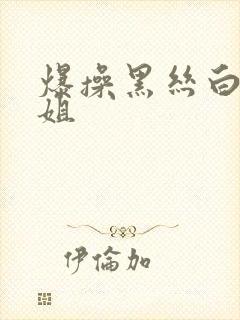 爆操黑絲白
姐
伊倫加